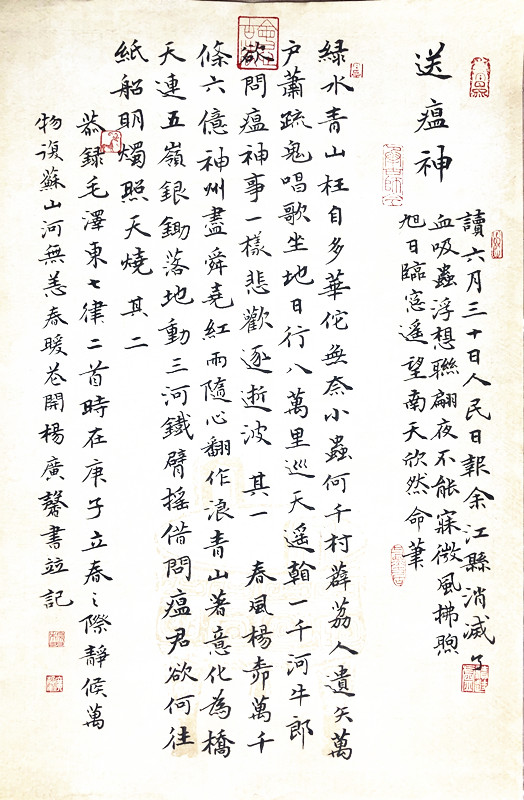 送瘟神
讀六月三十日人民日報余江縣消滅了
血吸蟲浮想聯翩夜不能寐微風拂煦
旭日臨窓遥望南天欣然命筆
緑水青山枉自多華佗無奈小蟲何千村薜荔人遺矢萬
户蕭疏鬼唱歌坐地日行八萬里巡天遥翰一千河牛郎
欲問瘟神事一樣悲歡逐逝波 其一 春風楊柳萬千
條六億神州盡舜堯紅雨隨心翻作浪青山著意化為橋
天連五嶺銀鋤落地動三河鐵臂摇借問瘟君欲何往
紙船明燭照天燒 其二
恭録毛澤東七律二首時在庚子立春之際靜候萬
物復蘇山河無恙春暖花開楊廣馨書並記